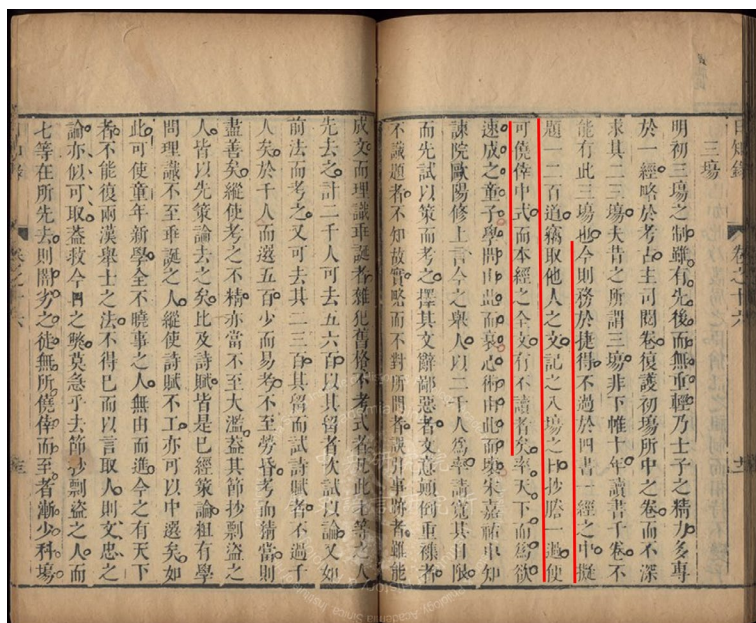 日知錄 卷之十六
三場
明初三場之制雖有先後而無重輕乃士子之精力多專
於一經略於考古主司閱卷復護初場所中之卷而不深
求其二三場夫昔之所謂三場非下帷十年讀書千卷不
能有此三場也今則務於捷得不過於四書一經之中擬
題一二百道竊取他人之文記之入場之日抄謄一過便
可僥倖中式而本經之全文有不讀者矣率天下而爲欲
速成之童子學問由此而衰心術由此而壞宋嘉祐中知
諫院歐陽修上言今之舉人以二千人爲率請寬其日限
而先試以策而考之擇其文辭鄙惡者文意顛倒重襍者
不識題者不知故實略而不對所問者誤引事跡者雖能
成文而理識乖誕者雜犯舊格不考式者凡此七等之人
先去之計二千人可去五六百以其留者次試以論又如
前法而考之又可去其二三百其留而試詩賦者不過千
人矣於千人而選五百少而易考不至勞昏考而精當則
盡善矣縱使考之不精亦當不至大濫蓋其節抄剽盜之
人皆以先策論去之矣比及詩賦皆是已經策論粗有學
問理識不至乖誕之人縱使詩賦不工亦可以中選矣如
此可使童年新學全不曉事之人無由而進今之有天下
者不能復兩漢舉士之法不得已而以言取人則文忠之
論亦似可取蓋救今日之獘莫急乎去節抄剽盜之人而
七等在所先去則闇劣之徒無所僥倖而至者漸少科場